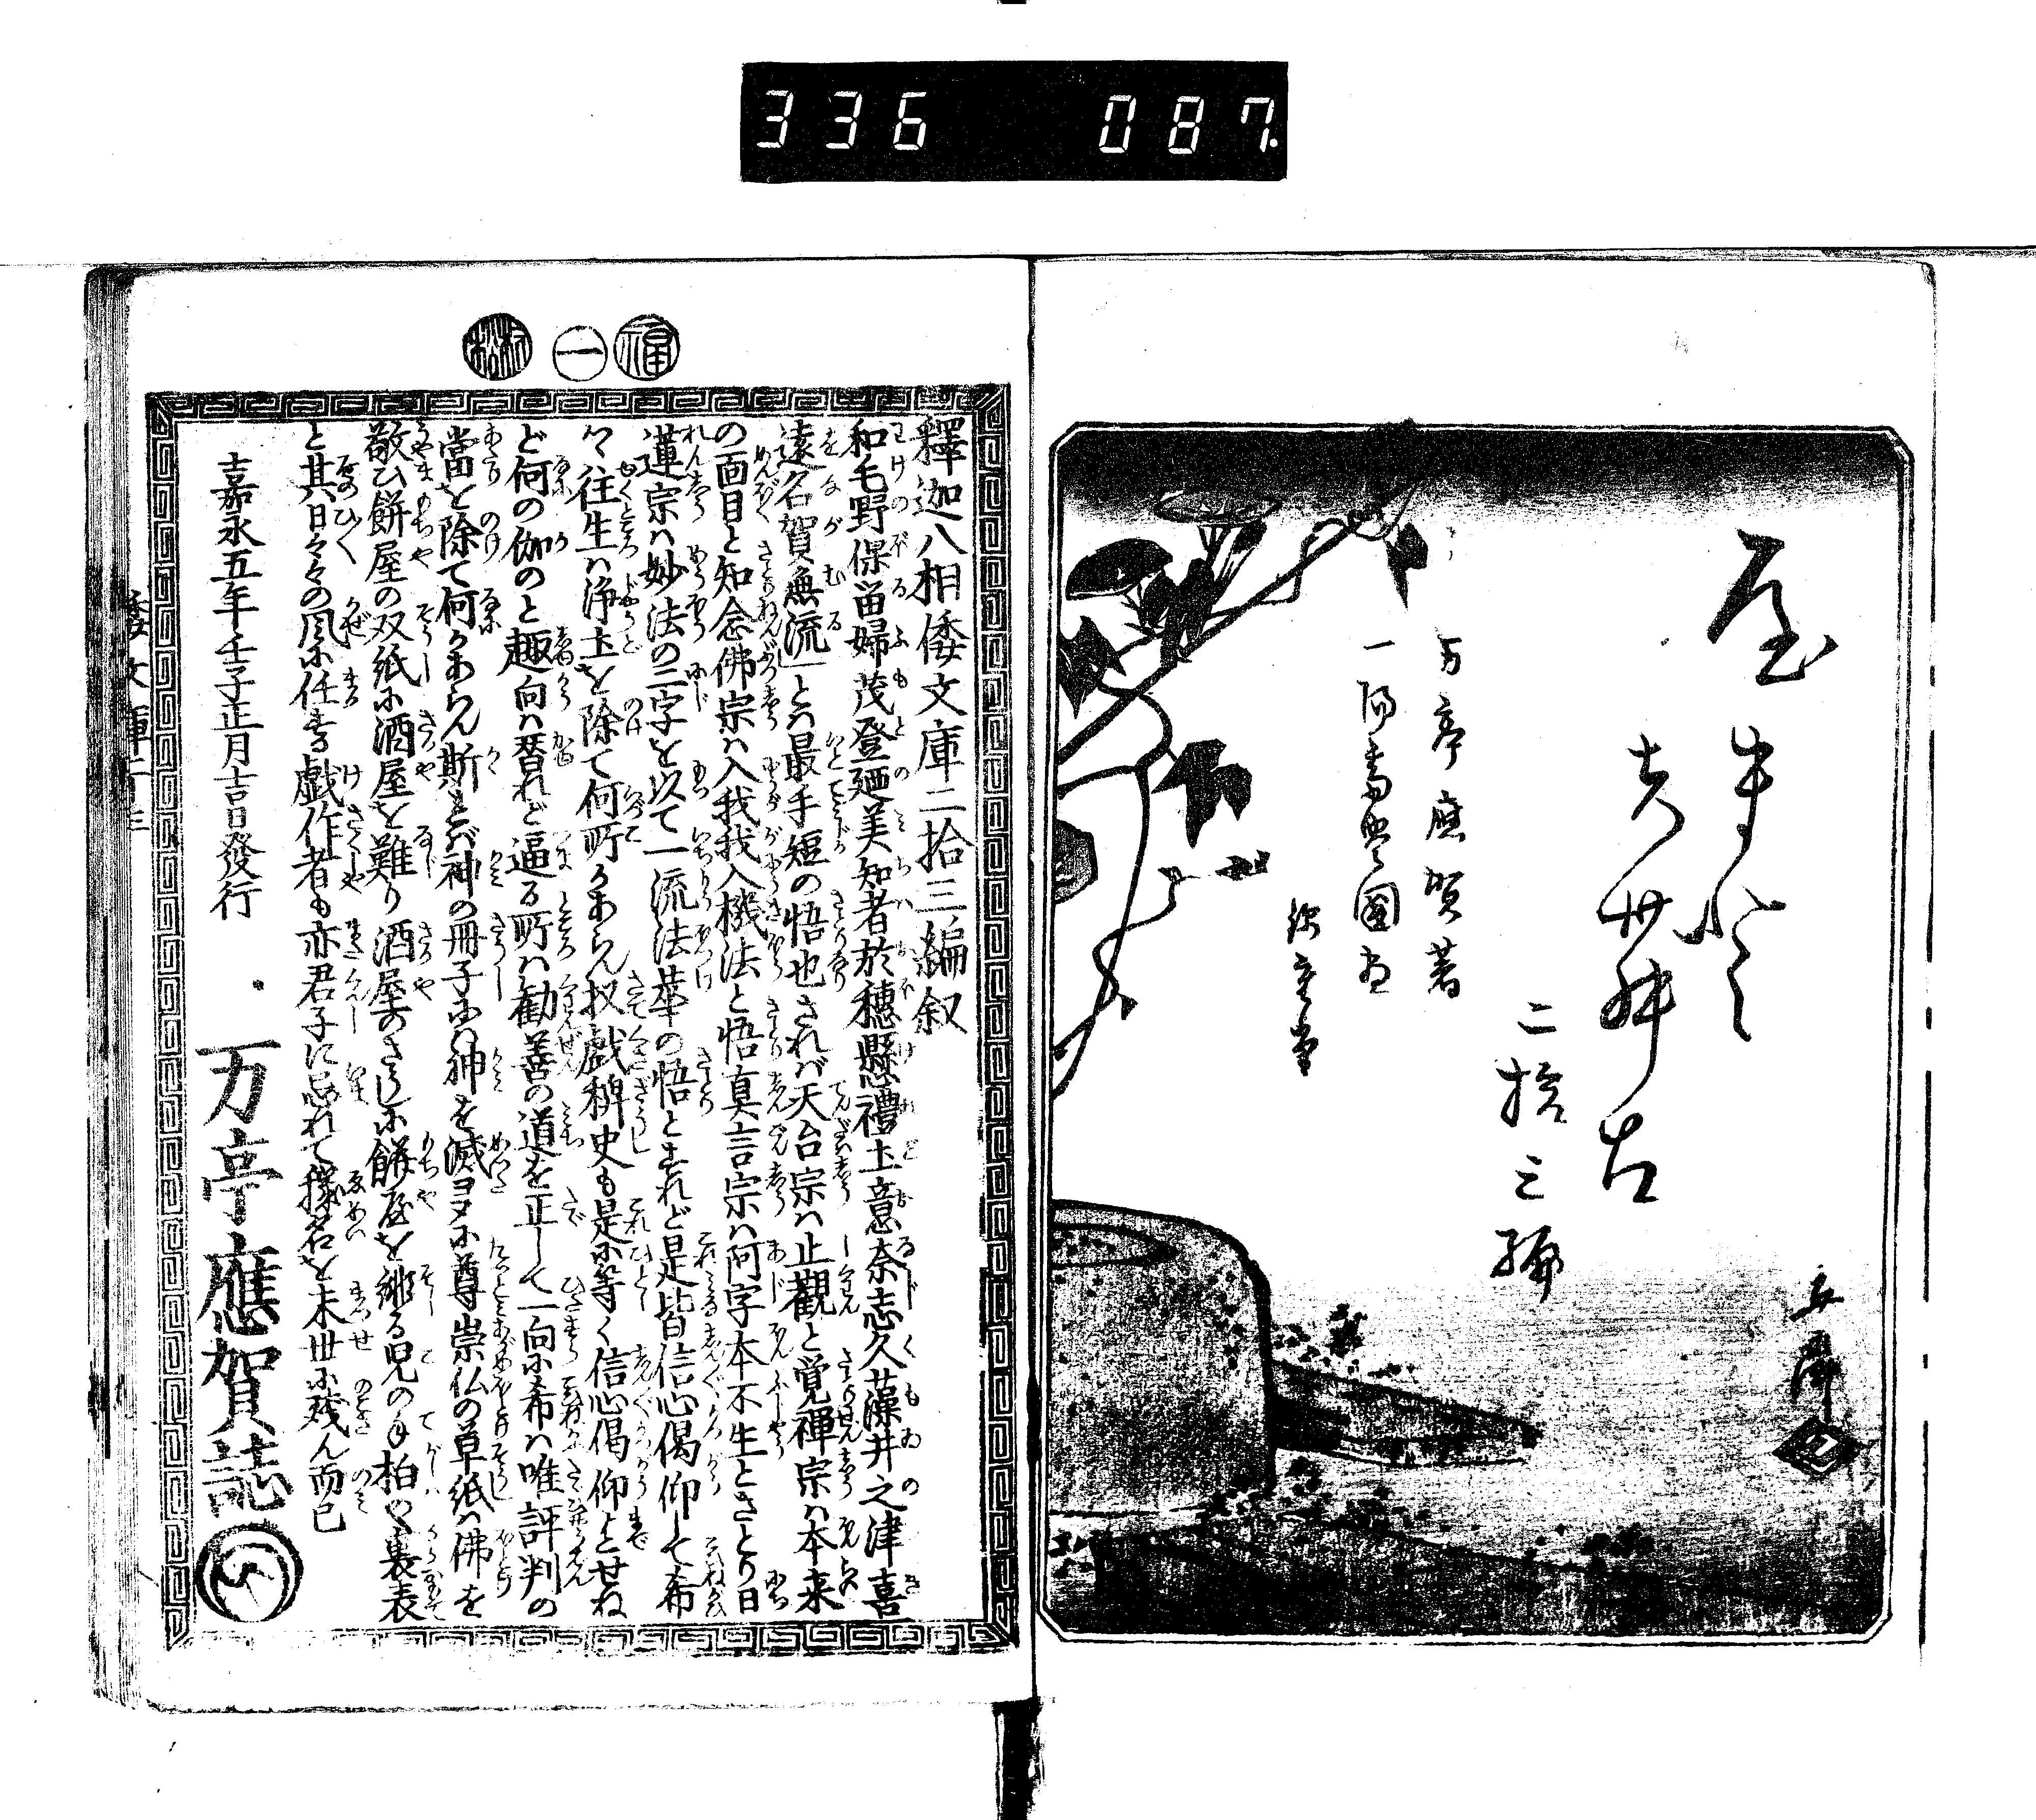 336 087.
屋まと
文庫
二拾三編
万亭應賀著
一陽斎豊國画
錦重堂
立齋
福
一
改
釋迦八相倭文庫二拾三編叙
和毛野保留婦茂登廼美知者於穂懸禮土意奈志久藻井之津喜
遠名賀無流」とハ最手短の悟也されバ天台宗ハ止觀と覚禅宗ハ本来
の面目と知念佛宗ハ入我我入機法と悟真言宗ハ阿字本不生とさとり日
蓮宗ハ妙法の二字を以て一流法華の悟とすれど是皆信心偈仰して希
く往生ハ浄土を除て何所かあらん扨戯稗史も是に等く信心偈仰とせね
ど何の伽のと趣向ハ替れど逼る所ハ勧善の道を正して一向に希ハ唯評判の
當を除て何かあらん斯とバ神の冊子にハ神を滅ヨタに尊崇仏の草紙ハ佛を
敬ひ餅屋の双紙に酒屋を難り酒屋のさうしに餅屋を誹る児の手柏や裏表
と其日々々の風に任す戯作者も亦君子に忘れて穢名を末世に残ん而已
嘉永五年壬子正月吉日發行
万亭應賀誌
倭文庫二十三